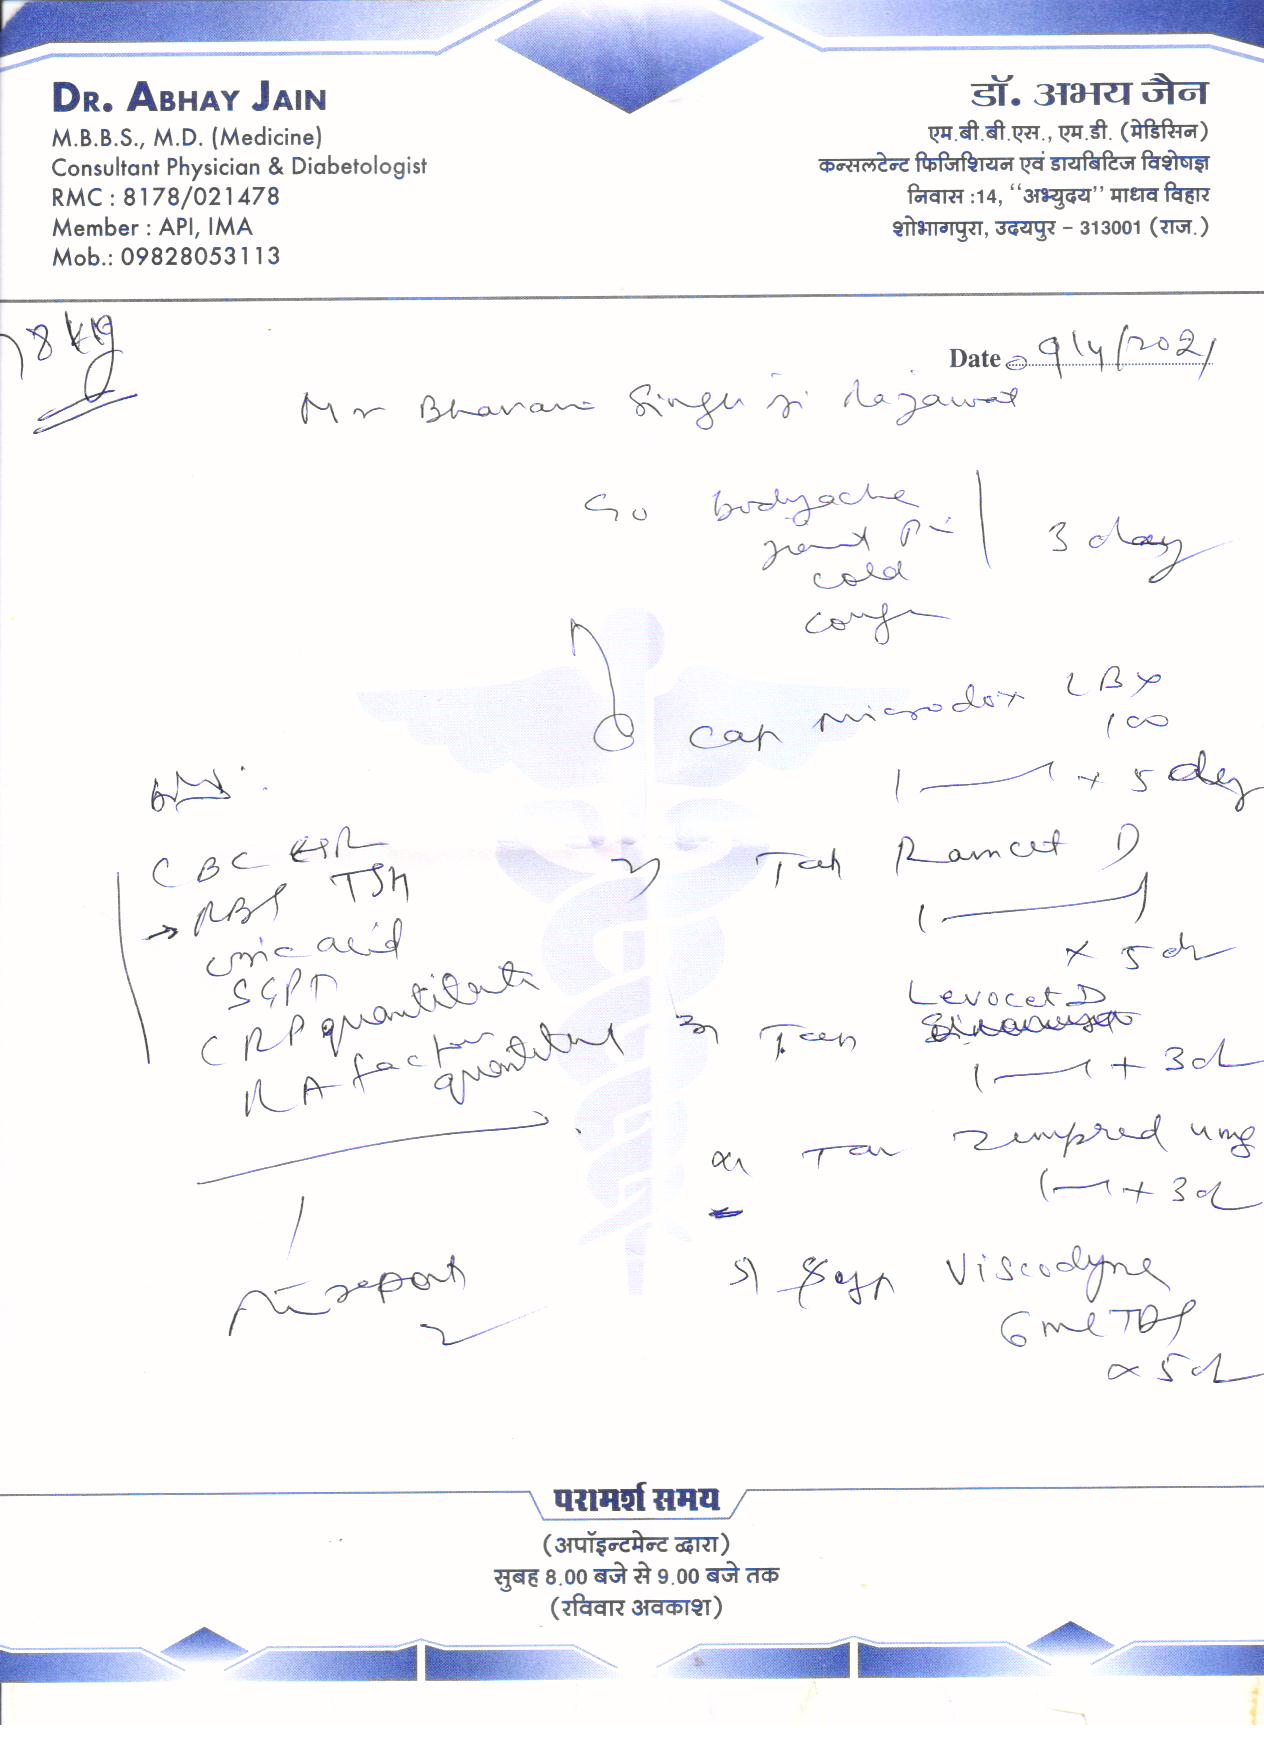 DR. ABHAY JAIN
M.B.B.S., M.D. (Medicine)
Consultant Physician & Diabetologist
RMC : 8178/021478
Member : API, IMA
Mob.: 09828053113
डॉ. अभय जैन
एम.बी.बी.एस., एम.डी. (मेडिसिन)
कन्सलटेन्ट फिजिशियन एवं डायबिटिज विशेषज्ञ
निवास :14, ‘‘अभ्युदय’’ माधव विहार
शोभागपुरा, उदयपुर – 313001 (राज.)
78 kg
Date 9/4/2021
Mr Bhavani Singh ji Rajawat
C/o bodyache
joint P
cold
cough
3 day
Cap Microdox LBX
100
1 — 1 x 5 day
2) Tab Ramcet D
1 — 1
x 5 d
Levocet D
3) Tab
1 — 1 x 3d
4) Tab Zempred 4mg
1 — 1 x 3d
5) Syp Viscodyne
6 ml TDS
x 5d
CBC ESR
→ RBS TSH
uric acid
SGPT
CRP quantitative
RA factor
quantitative
report
परामर्श समय
(अपॉइन्टमेन्ट द्वारा)
सुबह 8.00 बजे से 9.00 बजे तक
(रविवार अवकाश)